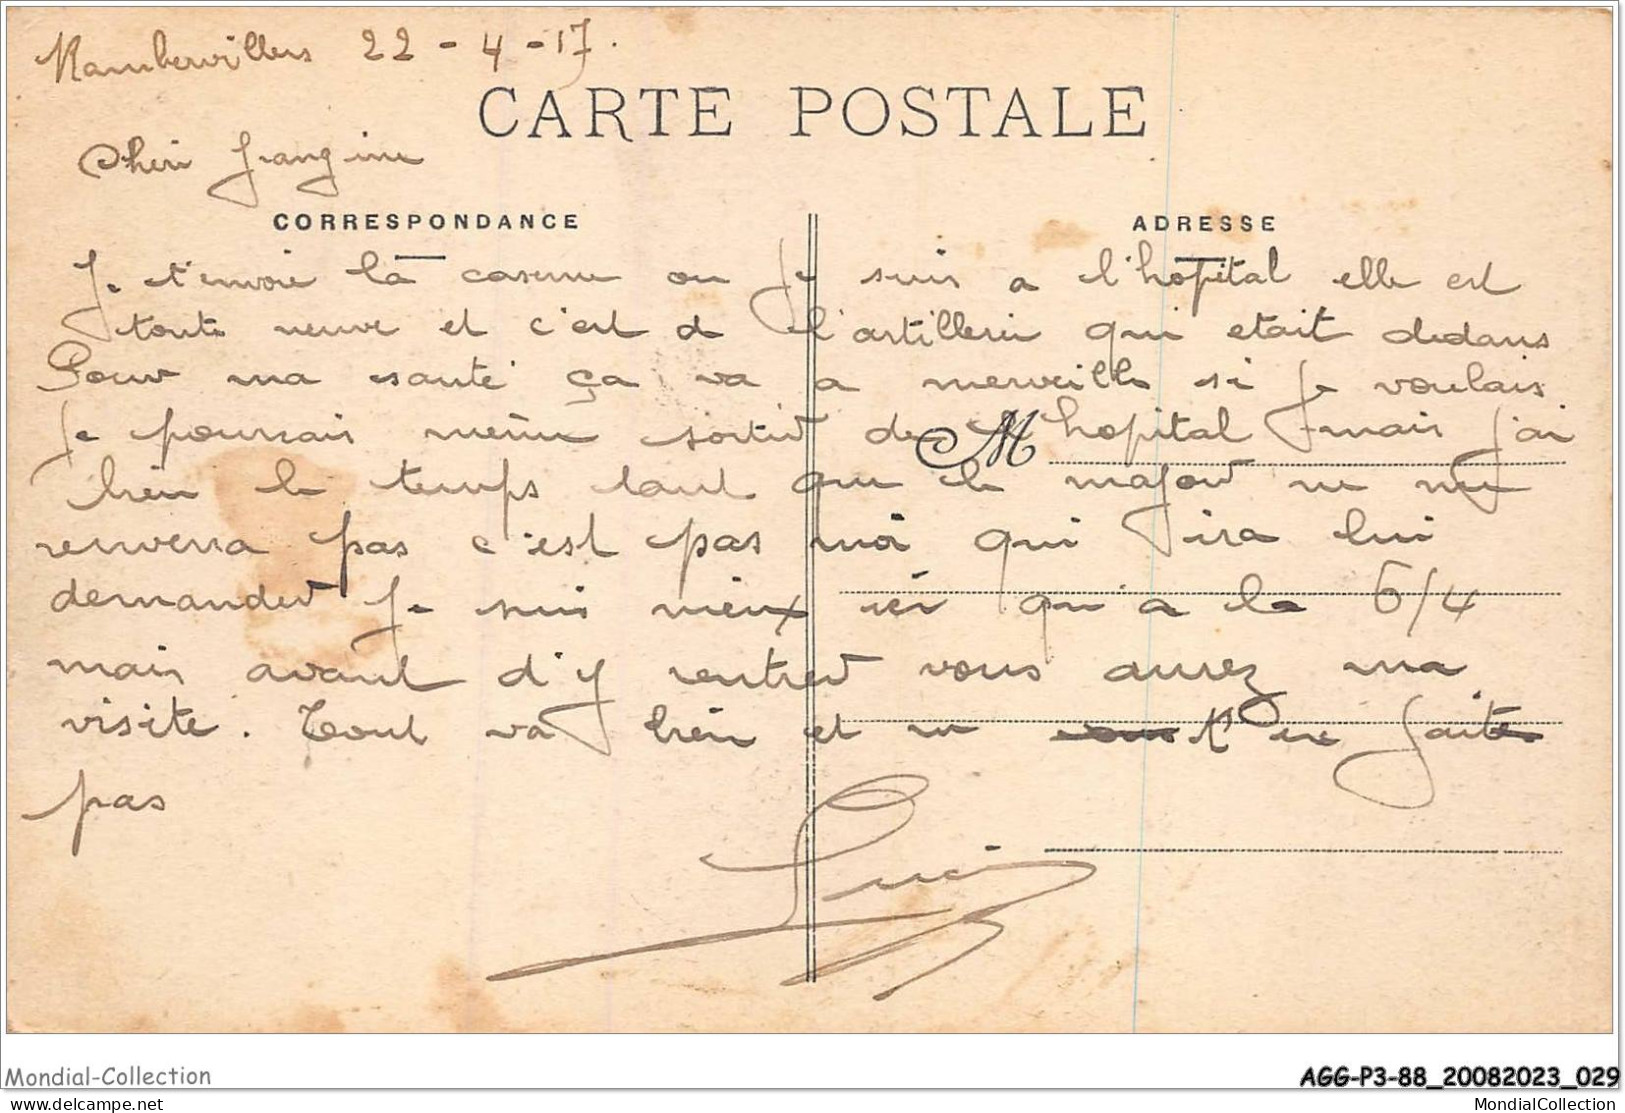 Rambervillers 22-4-17.
CARTE POSTALE
Cheri frangine
CORRESPONDANCE
ADRESSE
Je t'envoie la caserne ou je suis a l'hopital elle est
toute neuve et c'est de l'artillerie qui etait dedans
Pour ma santé ça va a merveille si je voulais
Je pourrais même sortir de l'hopital mais j'ai
M
bien le temps tant que le major ne me
renverra pas c'est pas moi qui ira lui
demander je suis mieux ici qu'a la 6/4
mais avant d'y rentrer vous aurez ma
visite. Tout va bien et ne t'en faite
pas
Lucien
Mondial-Collection
AGG-P3-88_20082023_029
delcampe.net
MondialCollection